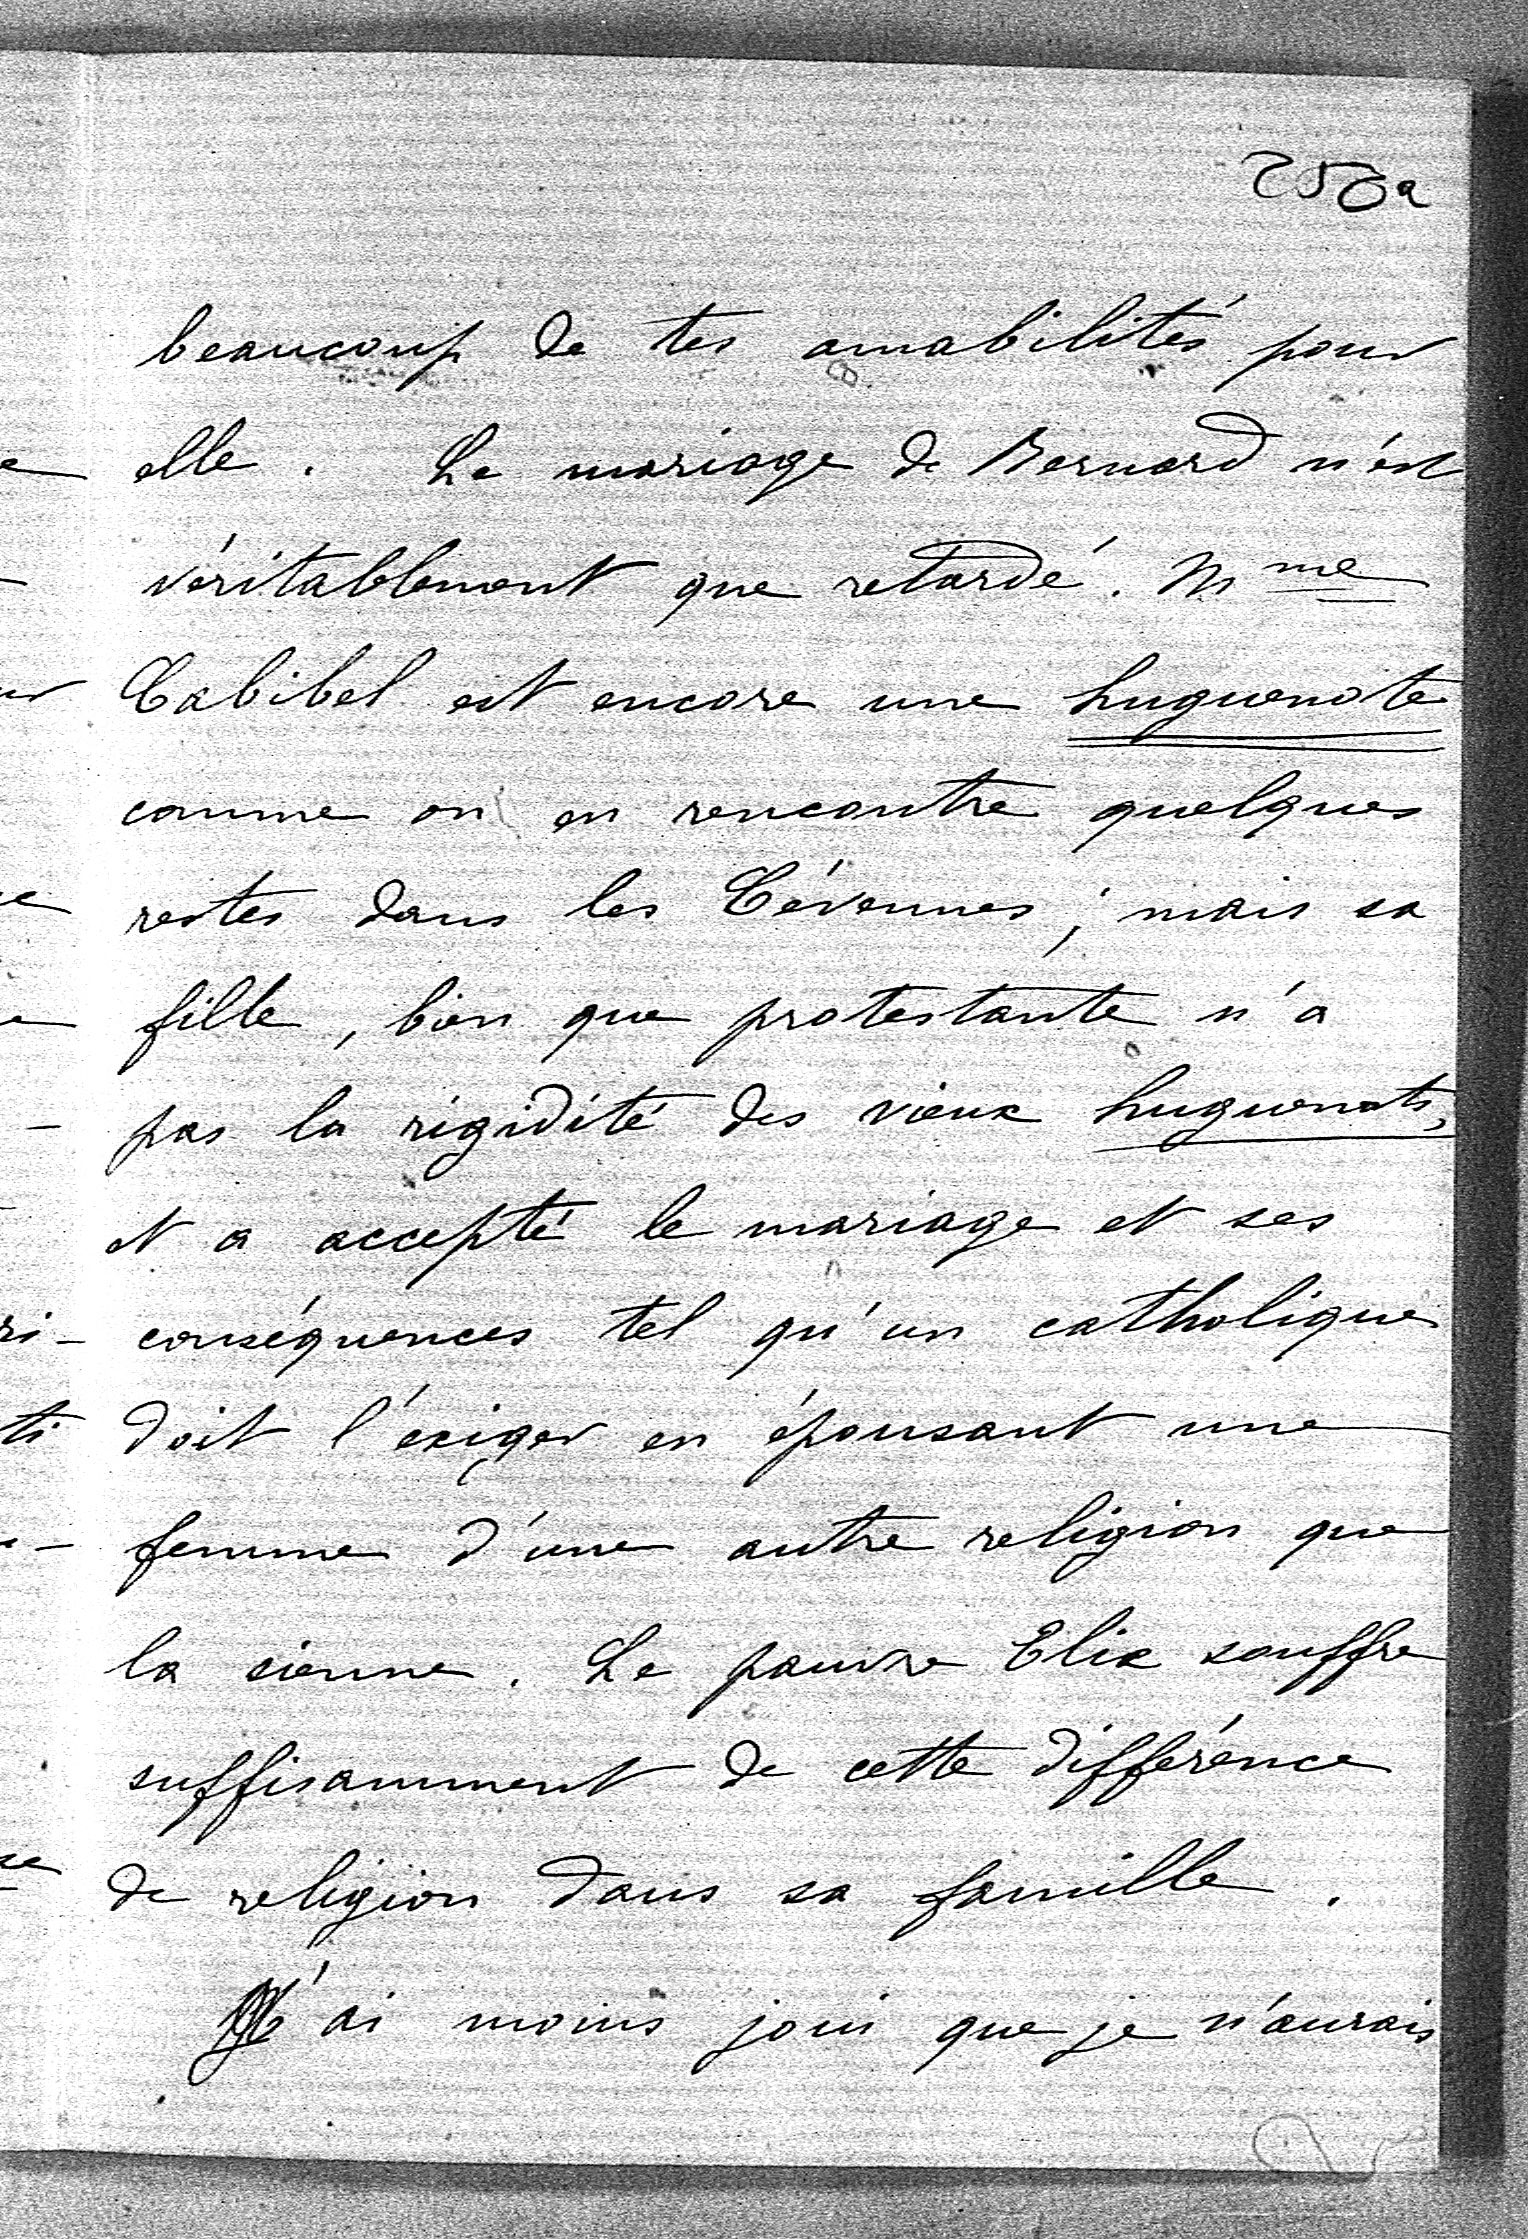 258a
beaucoup de tes amabilités pour
elle. Le mariage de Bernard n'est
véritablement que retardé. Mme
Cabibel est encore une huguenote
comme on en rencontre quelques
restes dans les Cévennes; mais sa
fille, bien que protestante n'a
pas la rigidité des vieux huguenots,
et a accepté le mariage et ses
conséquences tel qu'un catholique
doit l'éxiger en épousant une
femme d'une autre religion que
la sienne. Le pauvre Elix souffre
suffisamment de cette différence
de religion dans sa famille.
J'ai moins joui que je n'aurais